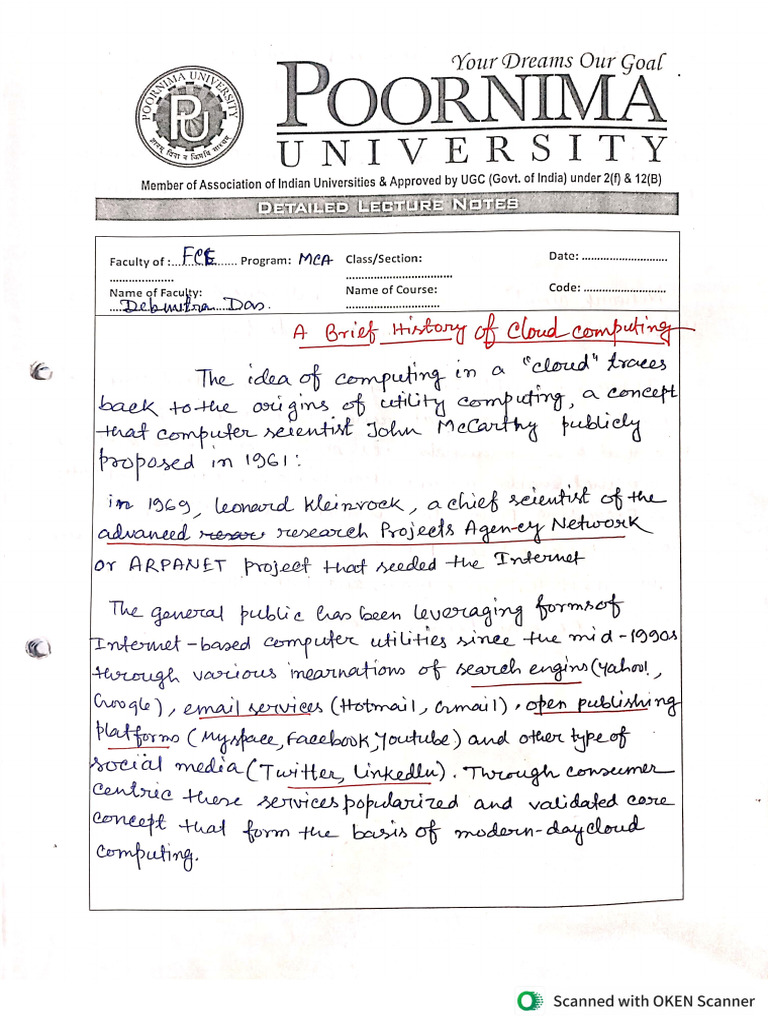 Your Dreams Our Goal
POORNIMA UNIVERSITY
PU
POORNIMA
UNIVERSITY
Member of Association of Indian Universities & Approved by UGC (Govt. of India) under 2(f) & 12(B)
DETAILED LECTURE NOTES
Faculty of :... FCE ......... Program: MCA Class/Section: Date: ............................
Name of Faculty: Name of Course: Code: ...........................
Debmitra Das.
A Brief History of Cloud computing
The idea of computing in a "cloud" traces
back to the origins of utility computing, a concept
that computer scientist John McCarthy publicly
proposed in 1961:
in 1969, Leonard Kleinrock, a chief scientist of the
advanced research Projects Agen-cy Network
or ARPANET project that seeded the Internet
The general public has been leveraging forms of
Internet-based computer utilities since the mid-1990s
through various incarnations of search engins (Yahoo!,
Google), email services (Hotmail, Gmail), open publishing
platforms (Myspace, Facebook, Youtube) and other type of
social media (Twitter, LinkedIn). Through consumer
centric these services popularized and validated core
concept that form the basis of modern-day cloud
computing.
Scanned with OKEN Scanner